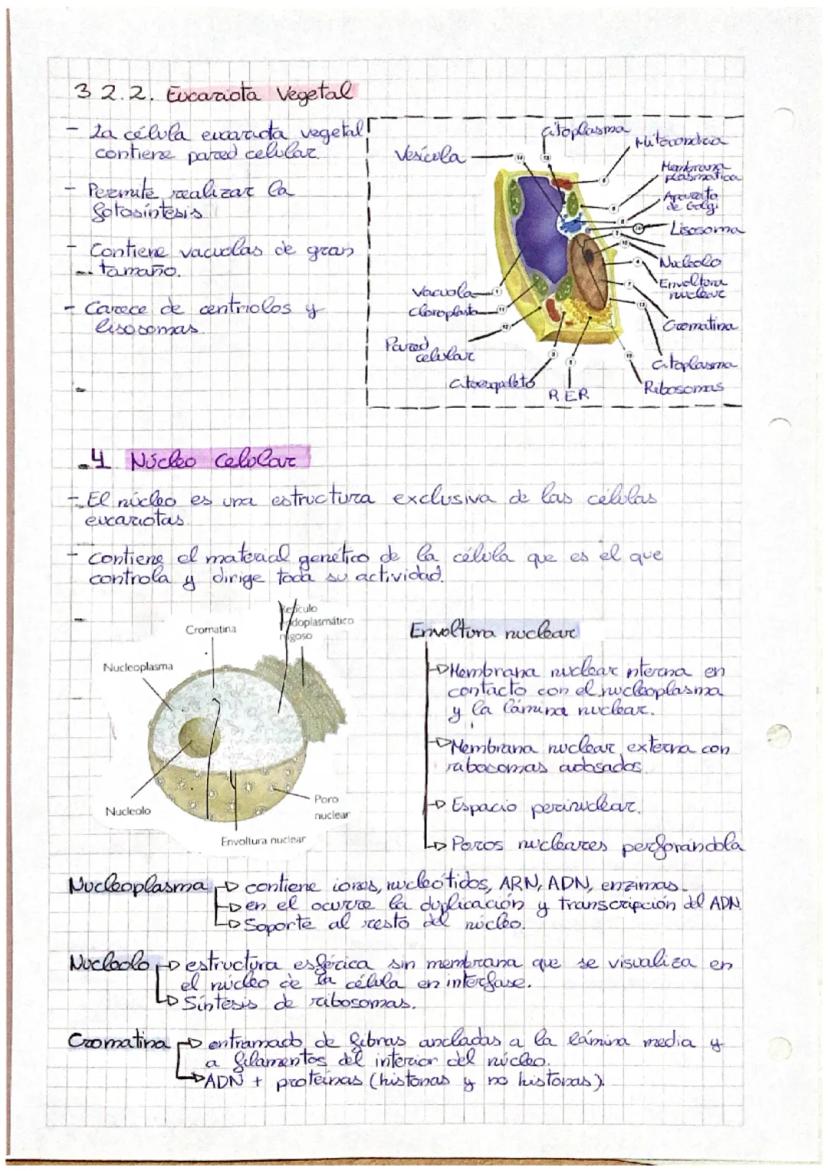 3 2.2. Eucariota Vegetal
- La célula eucariota vegetal
contiene pared celular.
- Permite realizar la
fotosíntesis
- Contiene vacuolas de gran
tamaño.
- Carece de centriolos y
lisosomas.
Citoplasma
Vesícula
Mitocondria
Membrana
plasmática
Aparato
de Golgi
Lisosoma
Nucleolo
Envoltura
nuclear
Vacuola
Cloroplasto
Cromatina
Pared
celular
Citoplasma
Citoesqueleto
R.E.R
Ribosomas
4 Núcleo Celular
- El núcleo es una estructura exclusiva de las células
eucariotas
- Contiene el material genético de la célula que es el que
controla y dirige toda su actividad.
Retículo
endoplasmático
rugoso
Cromatina
Nucleoplasma
Nucleolo
Poro
nuclear
Envoltura nuclear
Envoltura nuclear
Membrana nuclear nterna en
contacto con el nucleoplasma
y la lámina nuclear.
Membrana nuclear externa con
ribosomas adosados
Espacio perinuclear.
Poros nucleares perforándola
Nucleoplasma → contiene iones, nucleótidos, ARN, ADN, enzimas.
→ en el ocurre la duplicación y transcripción del ADN
→ Soporte al resto del núcleo.
Nucleolo → estructura esférica sin membrana que se visualiza en
el núcleo de la célula en interfase.
→ Síntesis de ribosomas.
Cromatina → entramado de fibras ancladas a la lámina media y
a filamentos del interior del núcleo.
→ ADN + proteínas (histonas y no histonas).